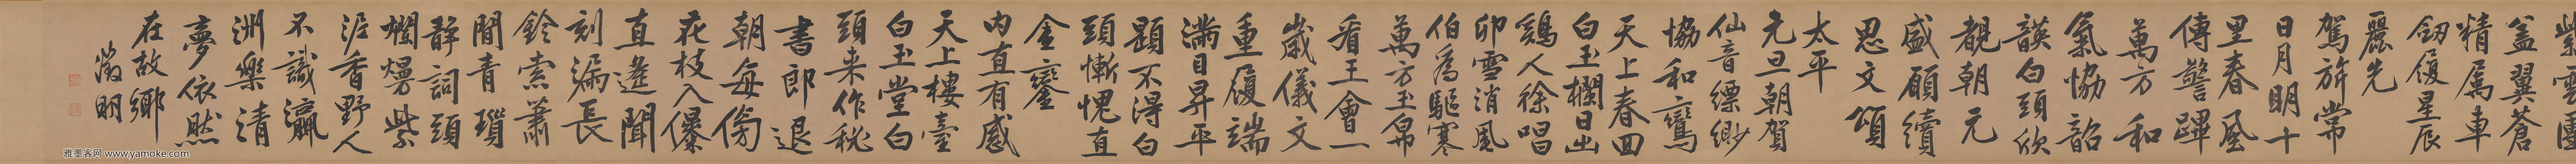 紫雲團
蓋翼蒼
精屬車
劒履星辰
麗先
駕旂常
日月明十
里春風
傳警蹕
萬方和
氣協韶
韺白頭欣
覩朝元
盛願續
思文頌
太平
元旦朝賀
仙音縹緲
協和鸞
天上春回
白玉欄日出
鷄人徐唱
卯雪消風
伯為驅寒
萬方玉帛
看王會一
歲儀文
重履端
滿目昇平
題不得白
頭慚愧直
金鑾
內直有感
天上樓臺
白玉堂白
頭来作秘
書郎退
朝每傍
花枝入儤
直遥聞
刻漏長
鈴索蕭
閒青瑣
靜詞頭
爛熳紫
泥香野人
不識瀛
洲樂清
夢依然
在故鄉
徵明
雅墨客网 www.yamoke.com